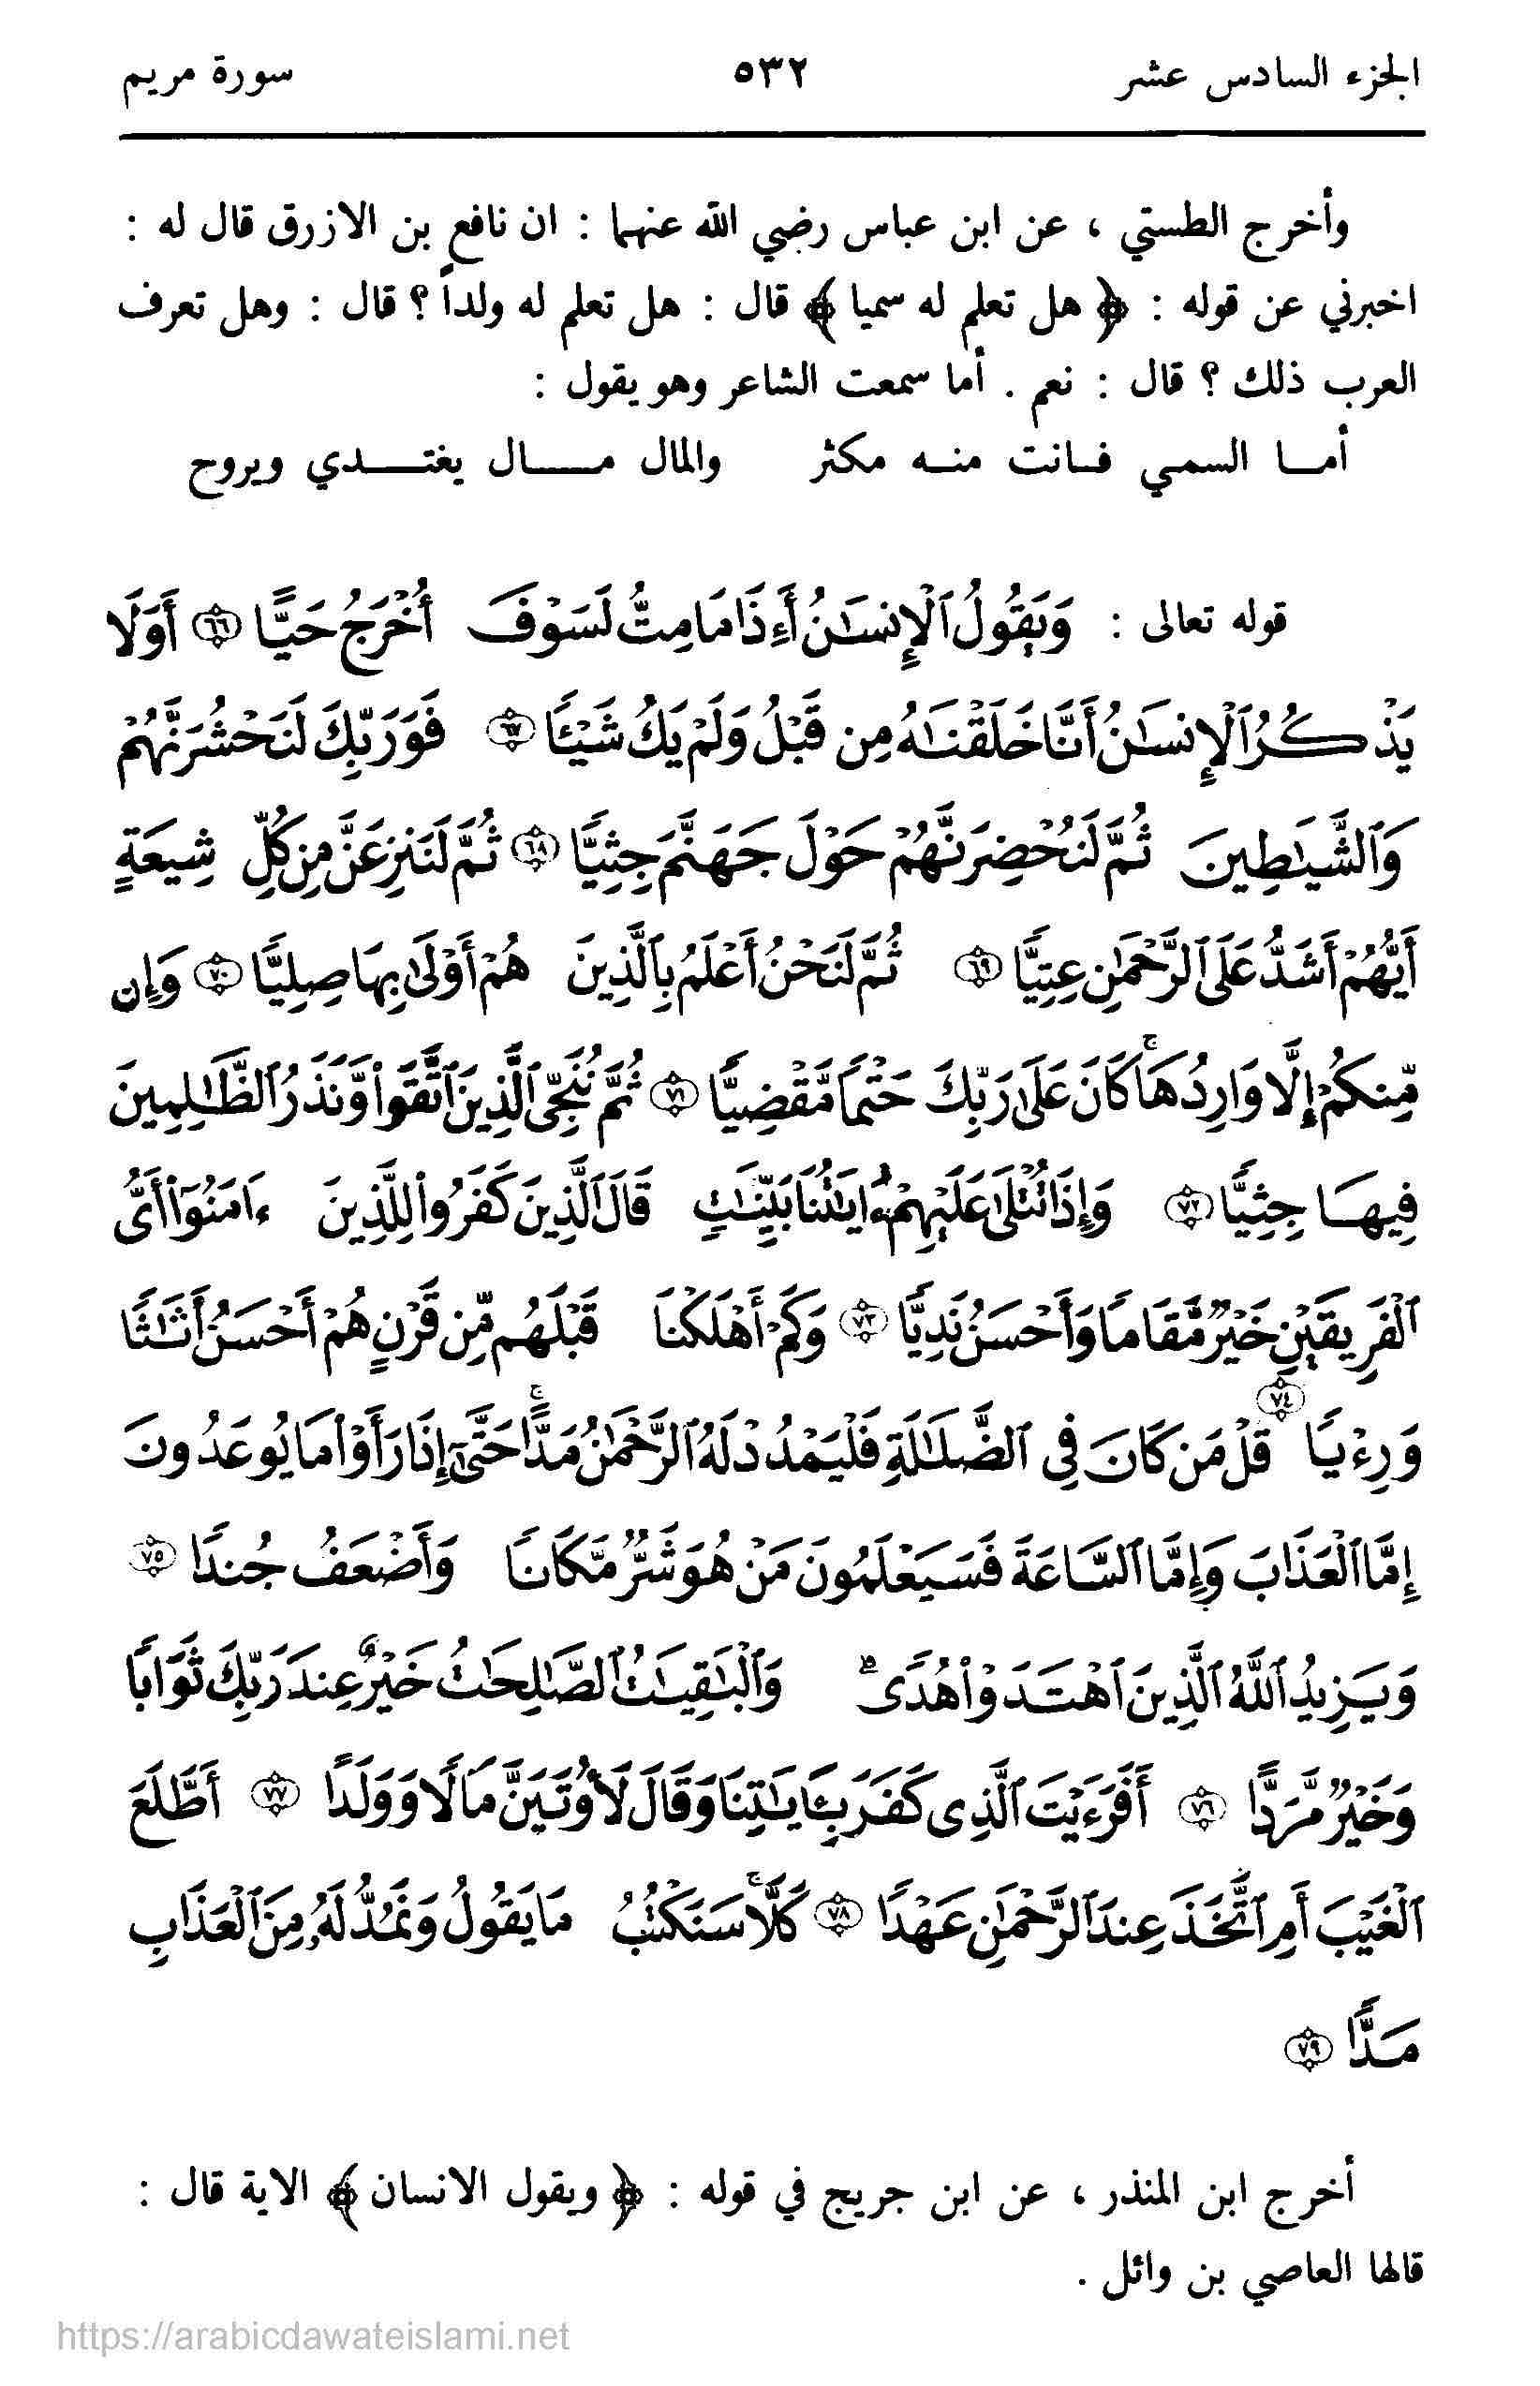 الجزء السادس عشر ٥٣٢ سورة مريم
وأخرج الطستي ، عن ابن عباس رضي الله عنهما : ان نافع بن الازرق قال له :
اخبرني عن قوله : ﴿ هل تعلم له سميا ﴾ قال : هل تعلم له ولداً ؟ قال : وهل تعرف
العرب ذلك ؟ قال : نعم . أما سمعت الشاعر وهو يقول :
أمـا السمـي فـانت منـه مكثر والمال مـــال يغتـــدي ويروح
قوله تعالى : وَيَقُولُ ٱلْإِنسَـٰنُ أَءِذَا مَا مِتُّ لَسَوْفَ أُخْرَجُ حَيًّا ٦٦ أَوَلَا
يَذْكُرُ ٱلْإِنسَـٰنُ أَنَّا خَلَقْنَـٰهُ مِن قَبْلُ وَلَمْ يَكُ شَيْـًٔا ٦٧ فَوَرَبِّكَ لَنَحْشُرَنَّهُمْ
وَٱلشَّيَـٰطِينَ ثُمَّ لَنُحْضِرَنَّهُمْ حَوْلَ جَهَنَّمَ جِثِيًّا ٦٨ ثُمَّ لَنَنزِعَنَّ مِن كُلِّ شِيعَةٍ
أَيُّهُمْ أَشَدُّ عَلَى ٱلرَّحْمَـٰنِ عِتِيًّا ٦٩ ثُمَّ لَنَحْنُ أَعْلَمُ بِٱلَّذِينَ هُمْ أَوْلَىٰ بِهَا صِلِيًّا ٧٠ وَإِن
مِّنكُمْ إِلَّا وَارِدُهَا ۚ كَانَ عَلَىٰ رَبِّكَ حَتْمًا مَّقْضِيًّا ٧١ ثُمَّ نُنَجِّى ٱلَّذِينَ ٱتَّقَوا۟ وَّنَذَرُ ٱلظَّـٰلِمِينَ
فِيهَا جِثِيًّا ٧٢ وَإِذَا تُتْلَىٰ عَلَيْهِمْ ءَايَـٰتُنَا بَيِّنَـٰتٍ قَالَ ٱلَّذِينَ كَفَرُوا۟ لِلَّذِينَ ءَامَنُوٓا۟ أَىُّ
ٱلْفَرِيقَيْنِ خَيْرٌ مَّقَامًا وَأَحْسَنُ نَدِيًّا ٧٣ وَكَمْ أَهْلَكْنَا قَبْلَهُم مِّن قَرْنٍ هُمْ أَحْسَنُ أَثَـٰثًا
وَرِءْيًا ٧٤ قُلْ مَن كَانَ فِى ٱلضَّلَـٰلَةِ فَلْيَمْدُدْ لَهُ ٱلرَّحْمَـٰنُ مَدًّا ۚ حَتَّىٰٓ إِذَا رَأَوْا۟ مَا يُوعَدُونَ
إِمَّا ٱلْعَذَابَ وَإِمَّا ٱلسَّاعَةَ فَسَيَعْلَمُونَ مَنْ هُوَ شَرٌّ مَّكَانًا وَأَضْعَفُ جُندًا ٧٥
وَيَزِيدُ ٱللَّهُ ٱلَّذِينَ ٱهْتَدَوْا۟ هُدًى ۗ وَٱلْبَـٰقِيَـٰتُ ٱلصَّـٰلِحَـٰتُ خَيْرٌ عِندَ رَبِّكَ ثَوَابًا
وَخَيْرٌ مَّرَدًّا ٧٦ أَفَرَءَيْتَ ٱلَّذِى كَفَرَ بِـَٔايَـٰتِنَا وَقَالَ لَأُوتَيَنَّ مَالًا وَوَلَدًا ٧٧ أَطَّلَعَ
ٱلْغَيْبَ أَمِ ٱتَّخَذَ عِندَ ٱلرَّحْمَـٰنِ عَهْدًا ٧٨ كَلَّا ۚ سَنَكْتُبُ مَا يَقُولُ وَنَمُدُّ لَهُۥ مِنَ ٱلْعَذَابِ
مَدًّا ٧٩
أخرج ابن المنذر ، عن ابن جريج في قوله : ﴿ ويقول الانسان ﴾ الاية قال :
قالها العاصي بن وائل .
https://arabicdawateislami.net